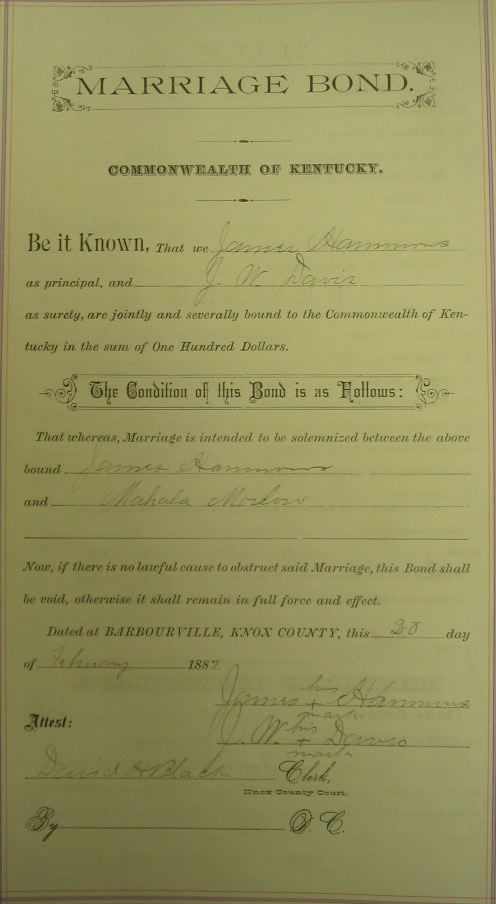 MARRIAGE BOND.
COMMONWEALTH OF KENTUCKY.
Be it Known, That we James Hammons
as principal, and J. W. Davis
as surety, are jointly and severally bound to the Commonwealth of Ken-
tucky in the sum of One Hundred Dollars.
The Condition of this Bond is as Follows:
That whereas, Marriage is intended to be solemnized between the above
bound James Hammons
and Mahala
Now, if there is no lawful cause to obstruct said Marriage, this Bond shall
be void, otherwise it shall remain in full force and effect.
Dated at BARBOURVILLE, KNOX COUNTY, this 20 day
of February 1887
his
James + Hammons
mark
Attest:
his
J. W. + Davis
mark
David H Black Clerk,
Knox County Court.
By D. C.